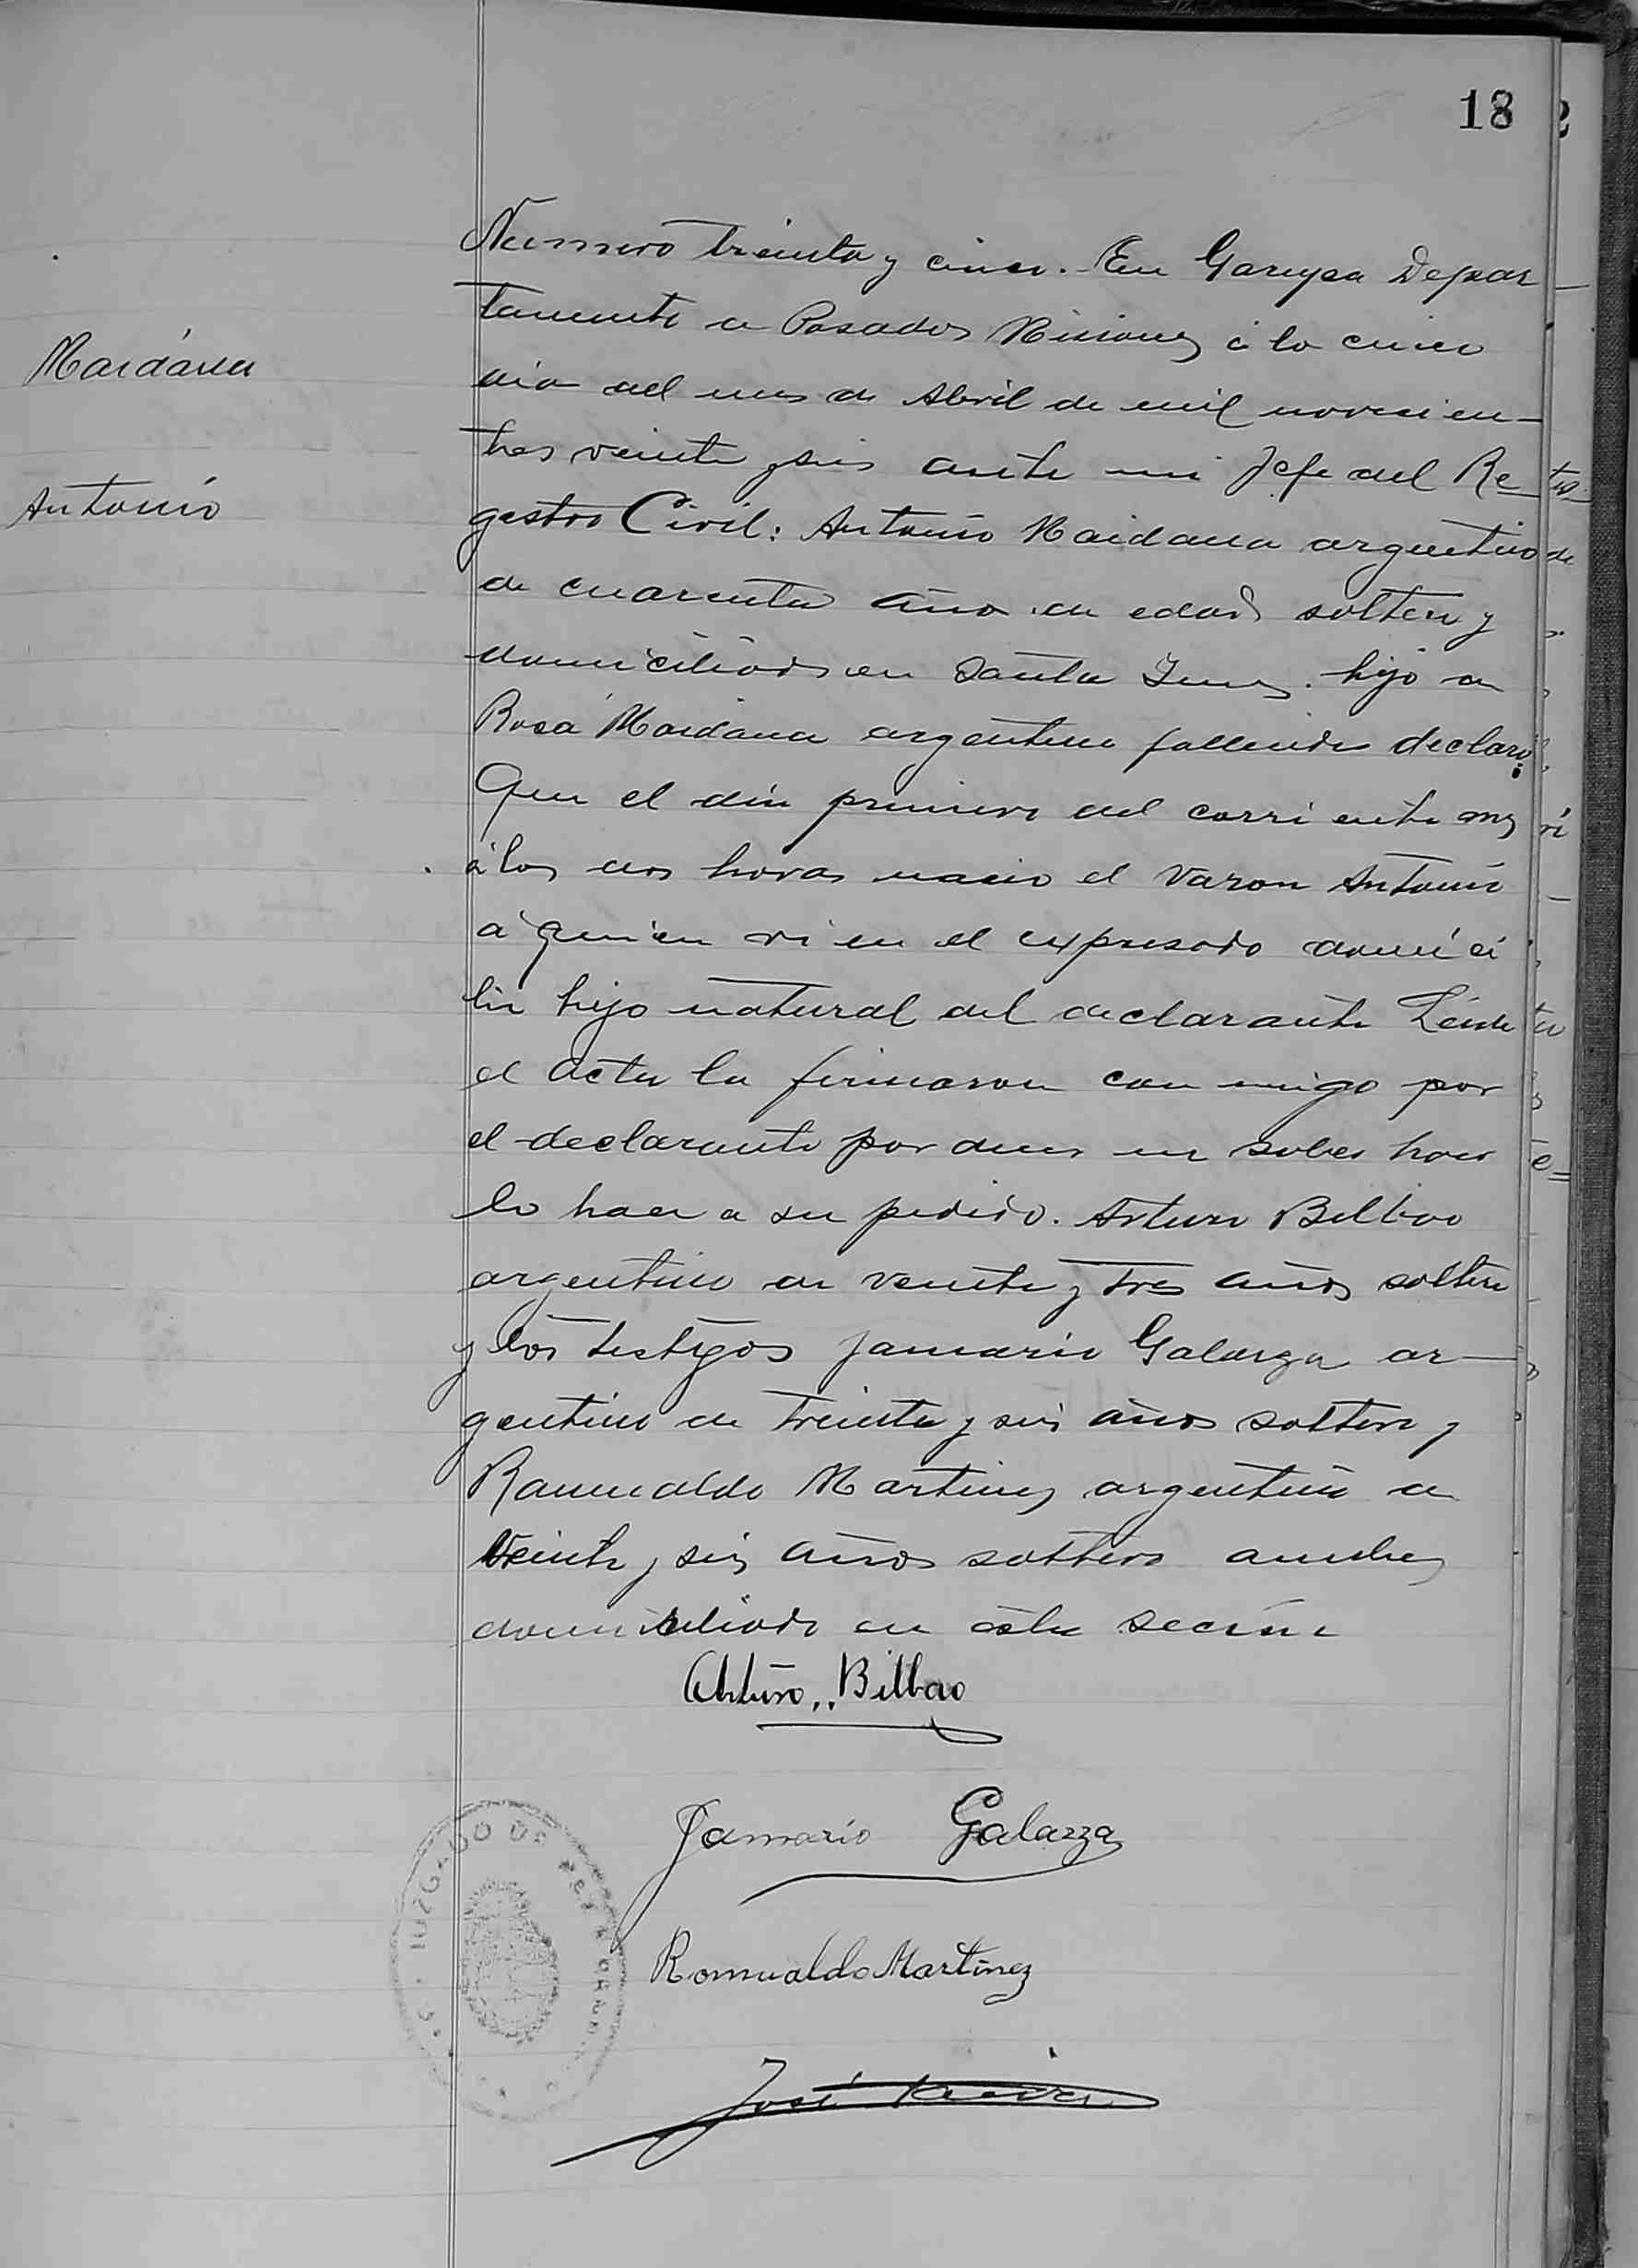 18
Maidana
Antonio
Número treinta y cinco. En Garupa Depar
tamento de Posadas Misiones á lo cinco
dia del mes de Abril de mil novecien-
tos veinte y seis ante mi Jefe del Re-
gistro Civil: Antonio Maidana argentino
de cuarenta año de edad soltero y
domiciliado en Santa Ines. hijo de
Rosa Maidana argentina fallecida declaro:
Que el dia primero del corriente mes
á las dos horas nacio el varon Antonio
a quien vi en el expresado domici
lio hijo natural del declarante Leida
el acta la firmaron con migo por
el declarante por decir no saber hacer
lo hace a su pedido. Arturo Bilbao
argentino de veinte y tres años soltero
y los testigos Januario Galarza ar-
gentino de treinta y seis años soltero y
Ramualdo Martinez argentino de
veinte y seis años soltero ambos
domiciliado en esta seccion
Arturo Bilbao
Jamario Galarza
Romualdo Martínez
José
JUZGADO DE PAZ